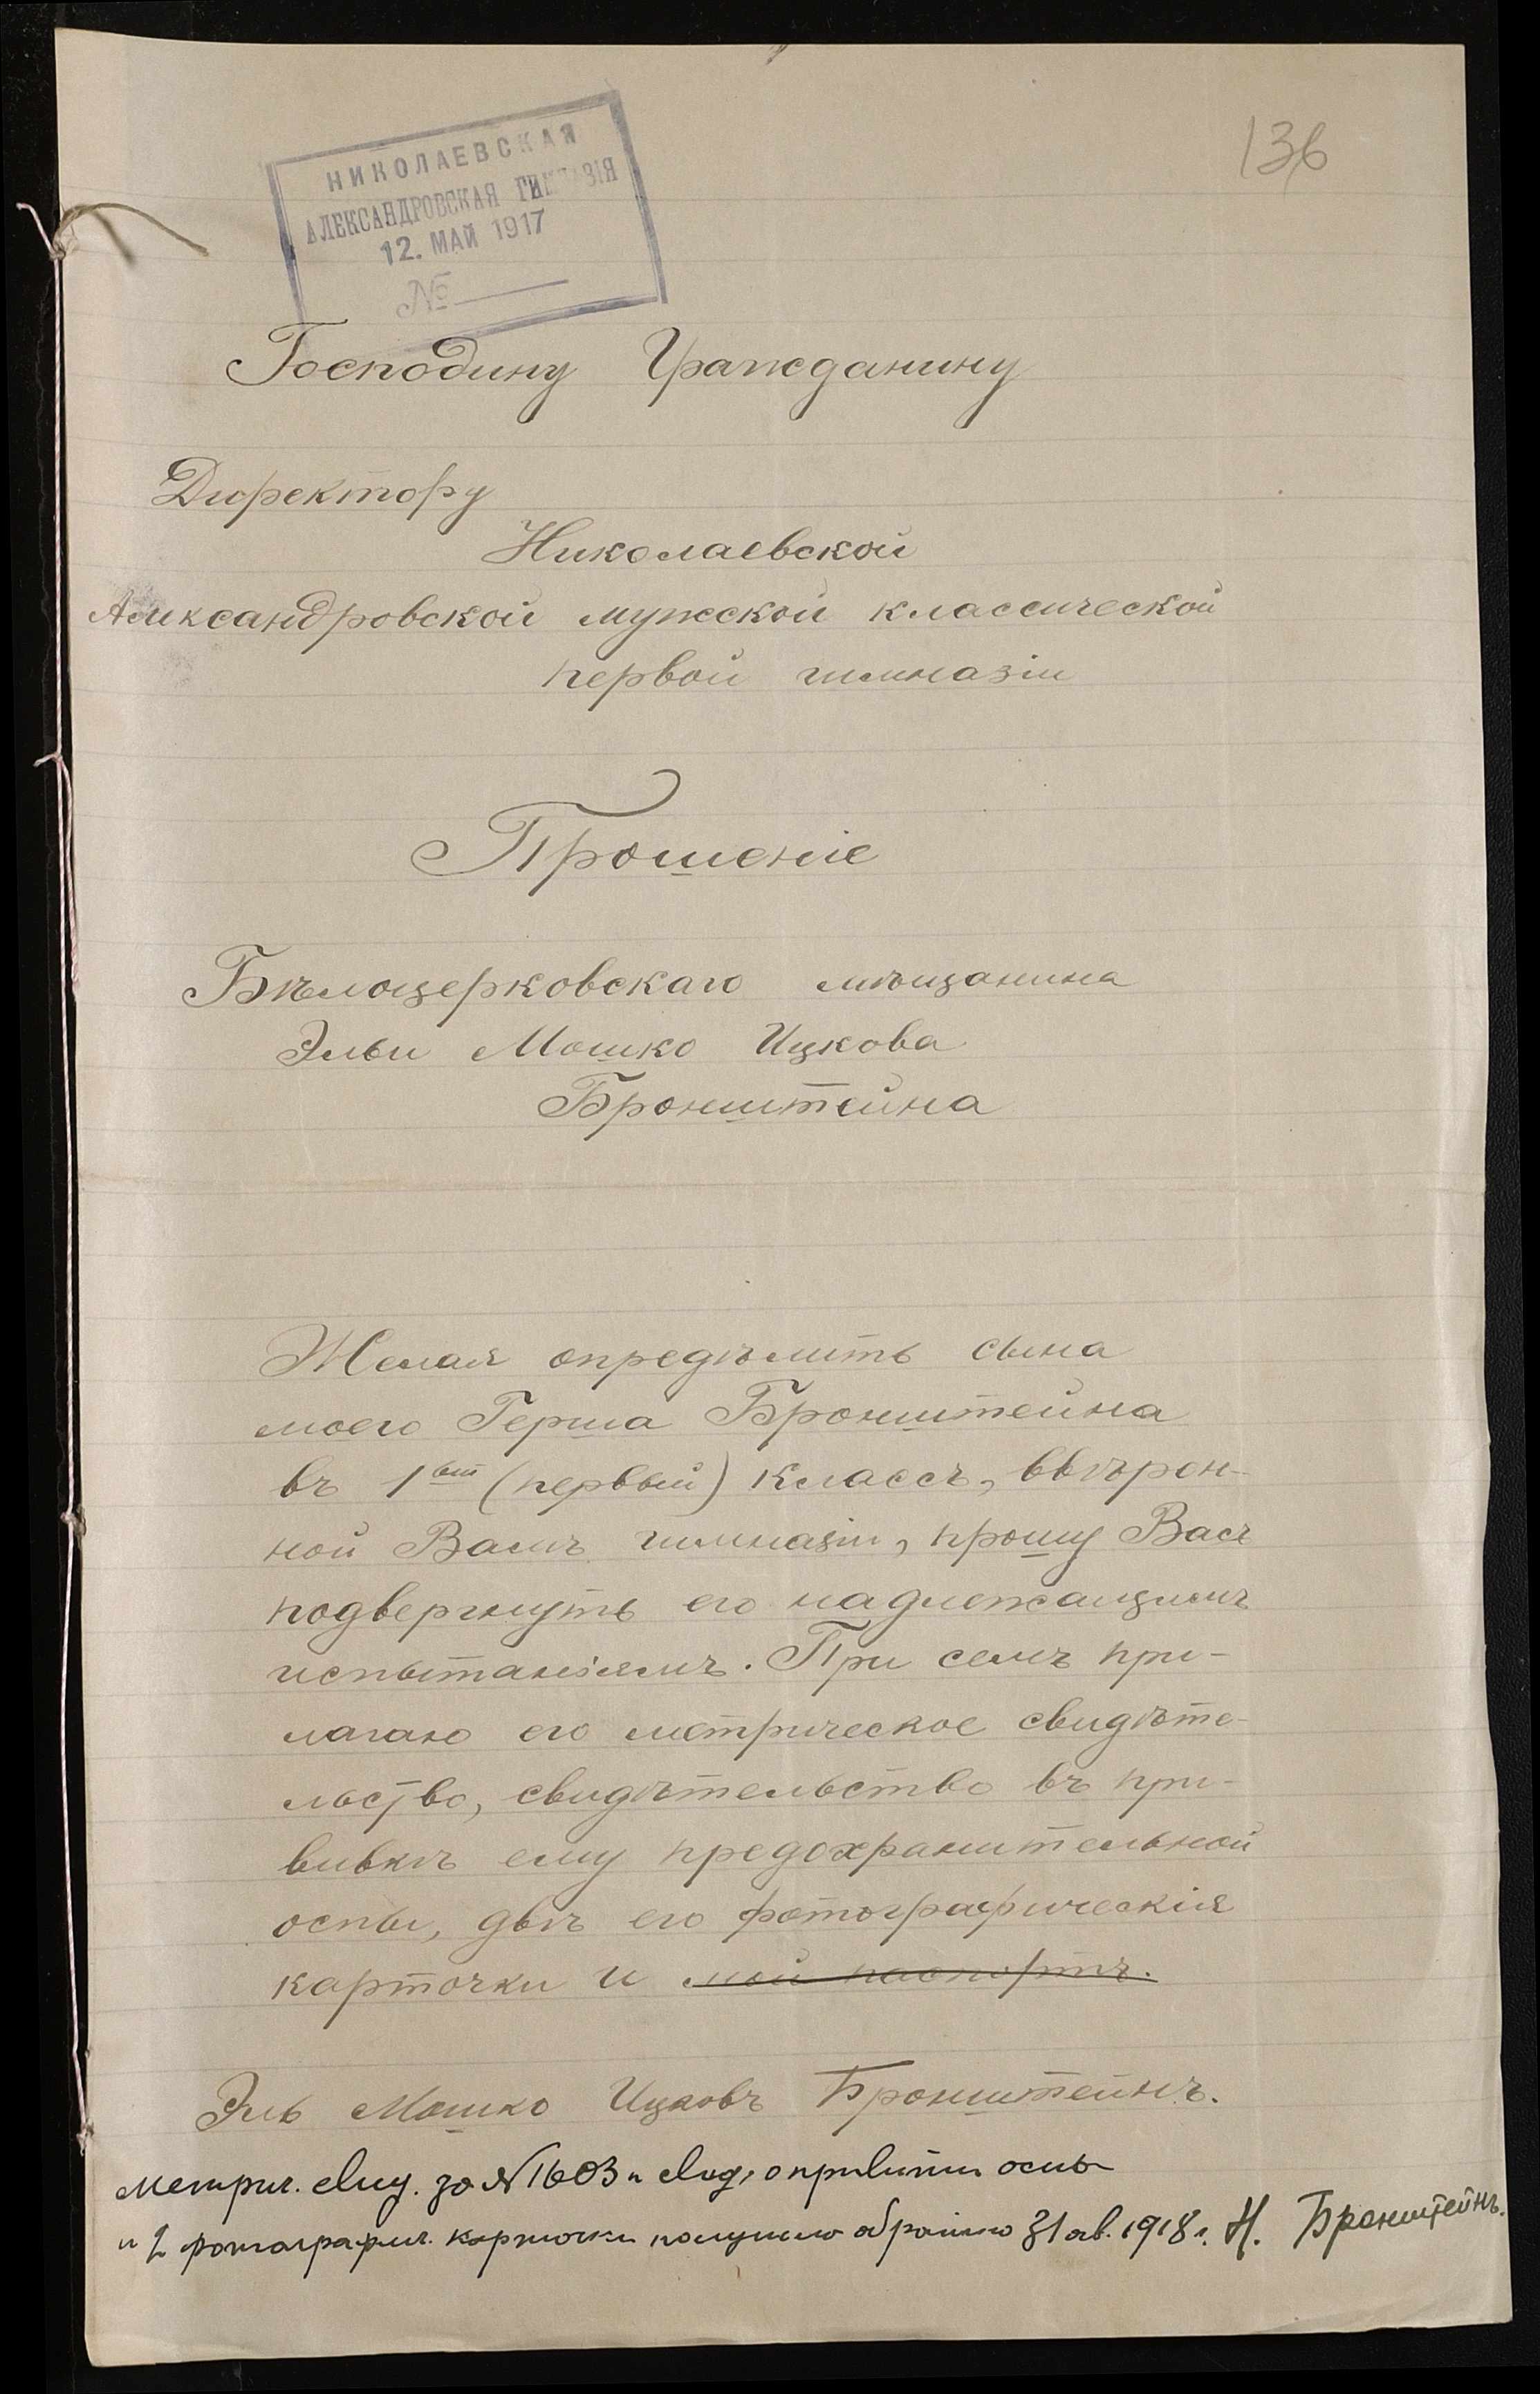 136
НИКОЛАЕВСКАЯ
АЛЕКСАНДРОВСКАЯ ГИМНАЗІЯ
12. МАЙ 1917
№
Господину Гражданину
Директору
Николаевской
Александровской мужской классической
первой гимназіи
Прошеніе
Бѣлоцерковскаго мѣщанина
Эльи Мошко Ицкова
Бронштейна
Желая опредѣлить сына
моего Герша Бронштейна
въ 1ый (первый) классъ, ввѣрен-
ной Вамъ гимназіи, прошу Васъ
подвергнуть его надлежащимъ
испытаніямъ. При семъ при-
лагаю его метрическое свидѣте-
льство, свидѣтельство въ при-
вивкѣ ему предохранительной
оспы, двѣ его фотографическія
карточки и мой паспортъ.
Эль Мошко Ицковъ Бронштейнъ.
Метрич. свид. за №1603 и свид. о привитіи оспы
и 2 фотографич. карточки получилъ обратно 31 ав. 1918 г. Н. Бронштейнъ.